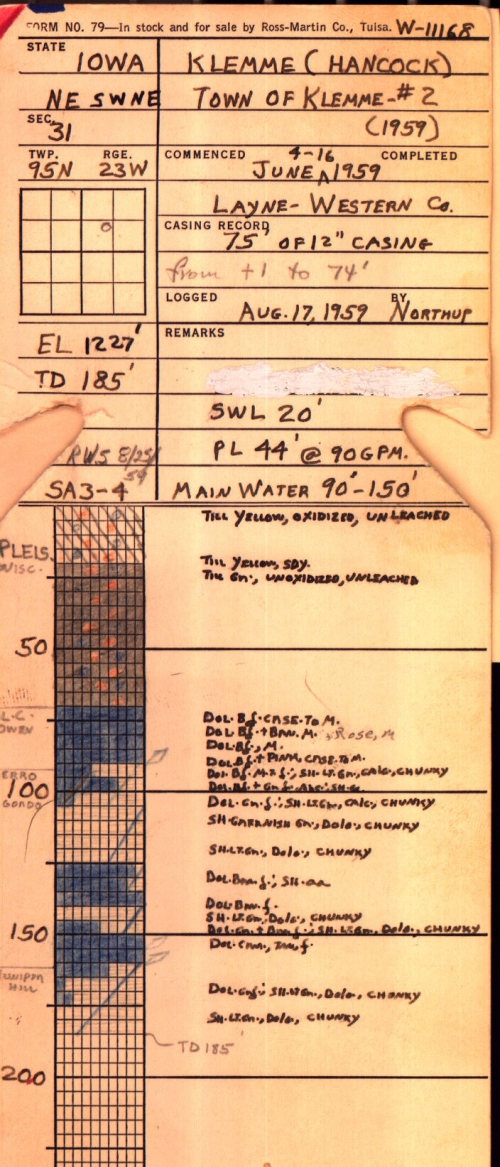 FORM NO. 79—In stock and for sale by Ross-Martin Co., Tulsa. W-11168
STATE IOWA KLEMME (HANCOCK)
NE SWNE TOWN OF KLEMME-#2
SEC. 31 (1959)
TWP. 95N RGE. 23W COMMENCED 4-16 COMPLETED
JUNE 1959
LAYNE-WESTERN CO.
CASING RECORD
75' OF 12" CASING
from +1 to 74'
LOGGED AUG. 17, 1959 BY NORTHUP
EL 1227' REMARKS
TD 185'
SWL 20'
RWS 8/25/59 PL 44' @ 90 GPM.
SA3-4 MAIN WATER 90'-150'
TILL YELLOW, OXIDIZED, UNLEACHED
PLEIS.
WISC.
TILL YELLOW, SDY.
TILL GN., UNOXIDIZED, UNLEACHED
50
L.C.-
OWEN
DOL. Bf. CRSE. TO M.
DOL. Bf. + BRN. M. Rose, M
DOL. Bf., M.
DOL. Bf. + PINK, CRSE. TO M.
DOL. Bf. M. & f.; SH. LT. GN., CALC., CHUNKY
ERRO
GORDO
100
DOL. GN. f.; SH. LT. GN., CALC., CHUNKY
SH. GREENISH GN., DOLO., CHUNKY
SH. LT. GN., DOLO., CHUNKY
DOL. BRN. f.; SH. aa
DOL. BRN. f.
SH. LT. GN., DOLO., CHUNKY
150
DOL. GN. + BRN. f.; SH. LT. GN., DOLO., CHUNKY
DOL. CRM., TAN, f.
JUNIPER
HILL
DOL. GN. f.; SH. LT. GN., DOLO., CHUNKY
SH. LT. GN., DOLO., CHUNKY
TD 185'
200